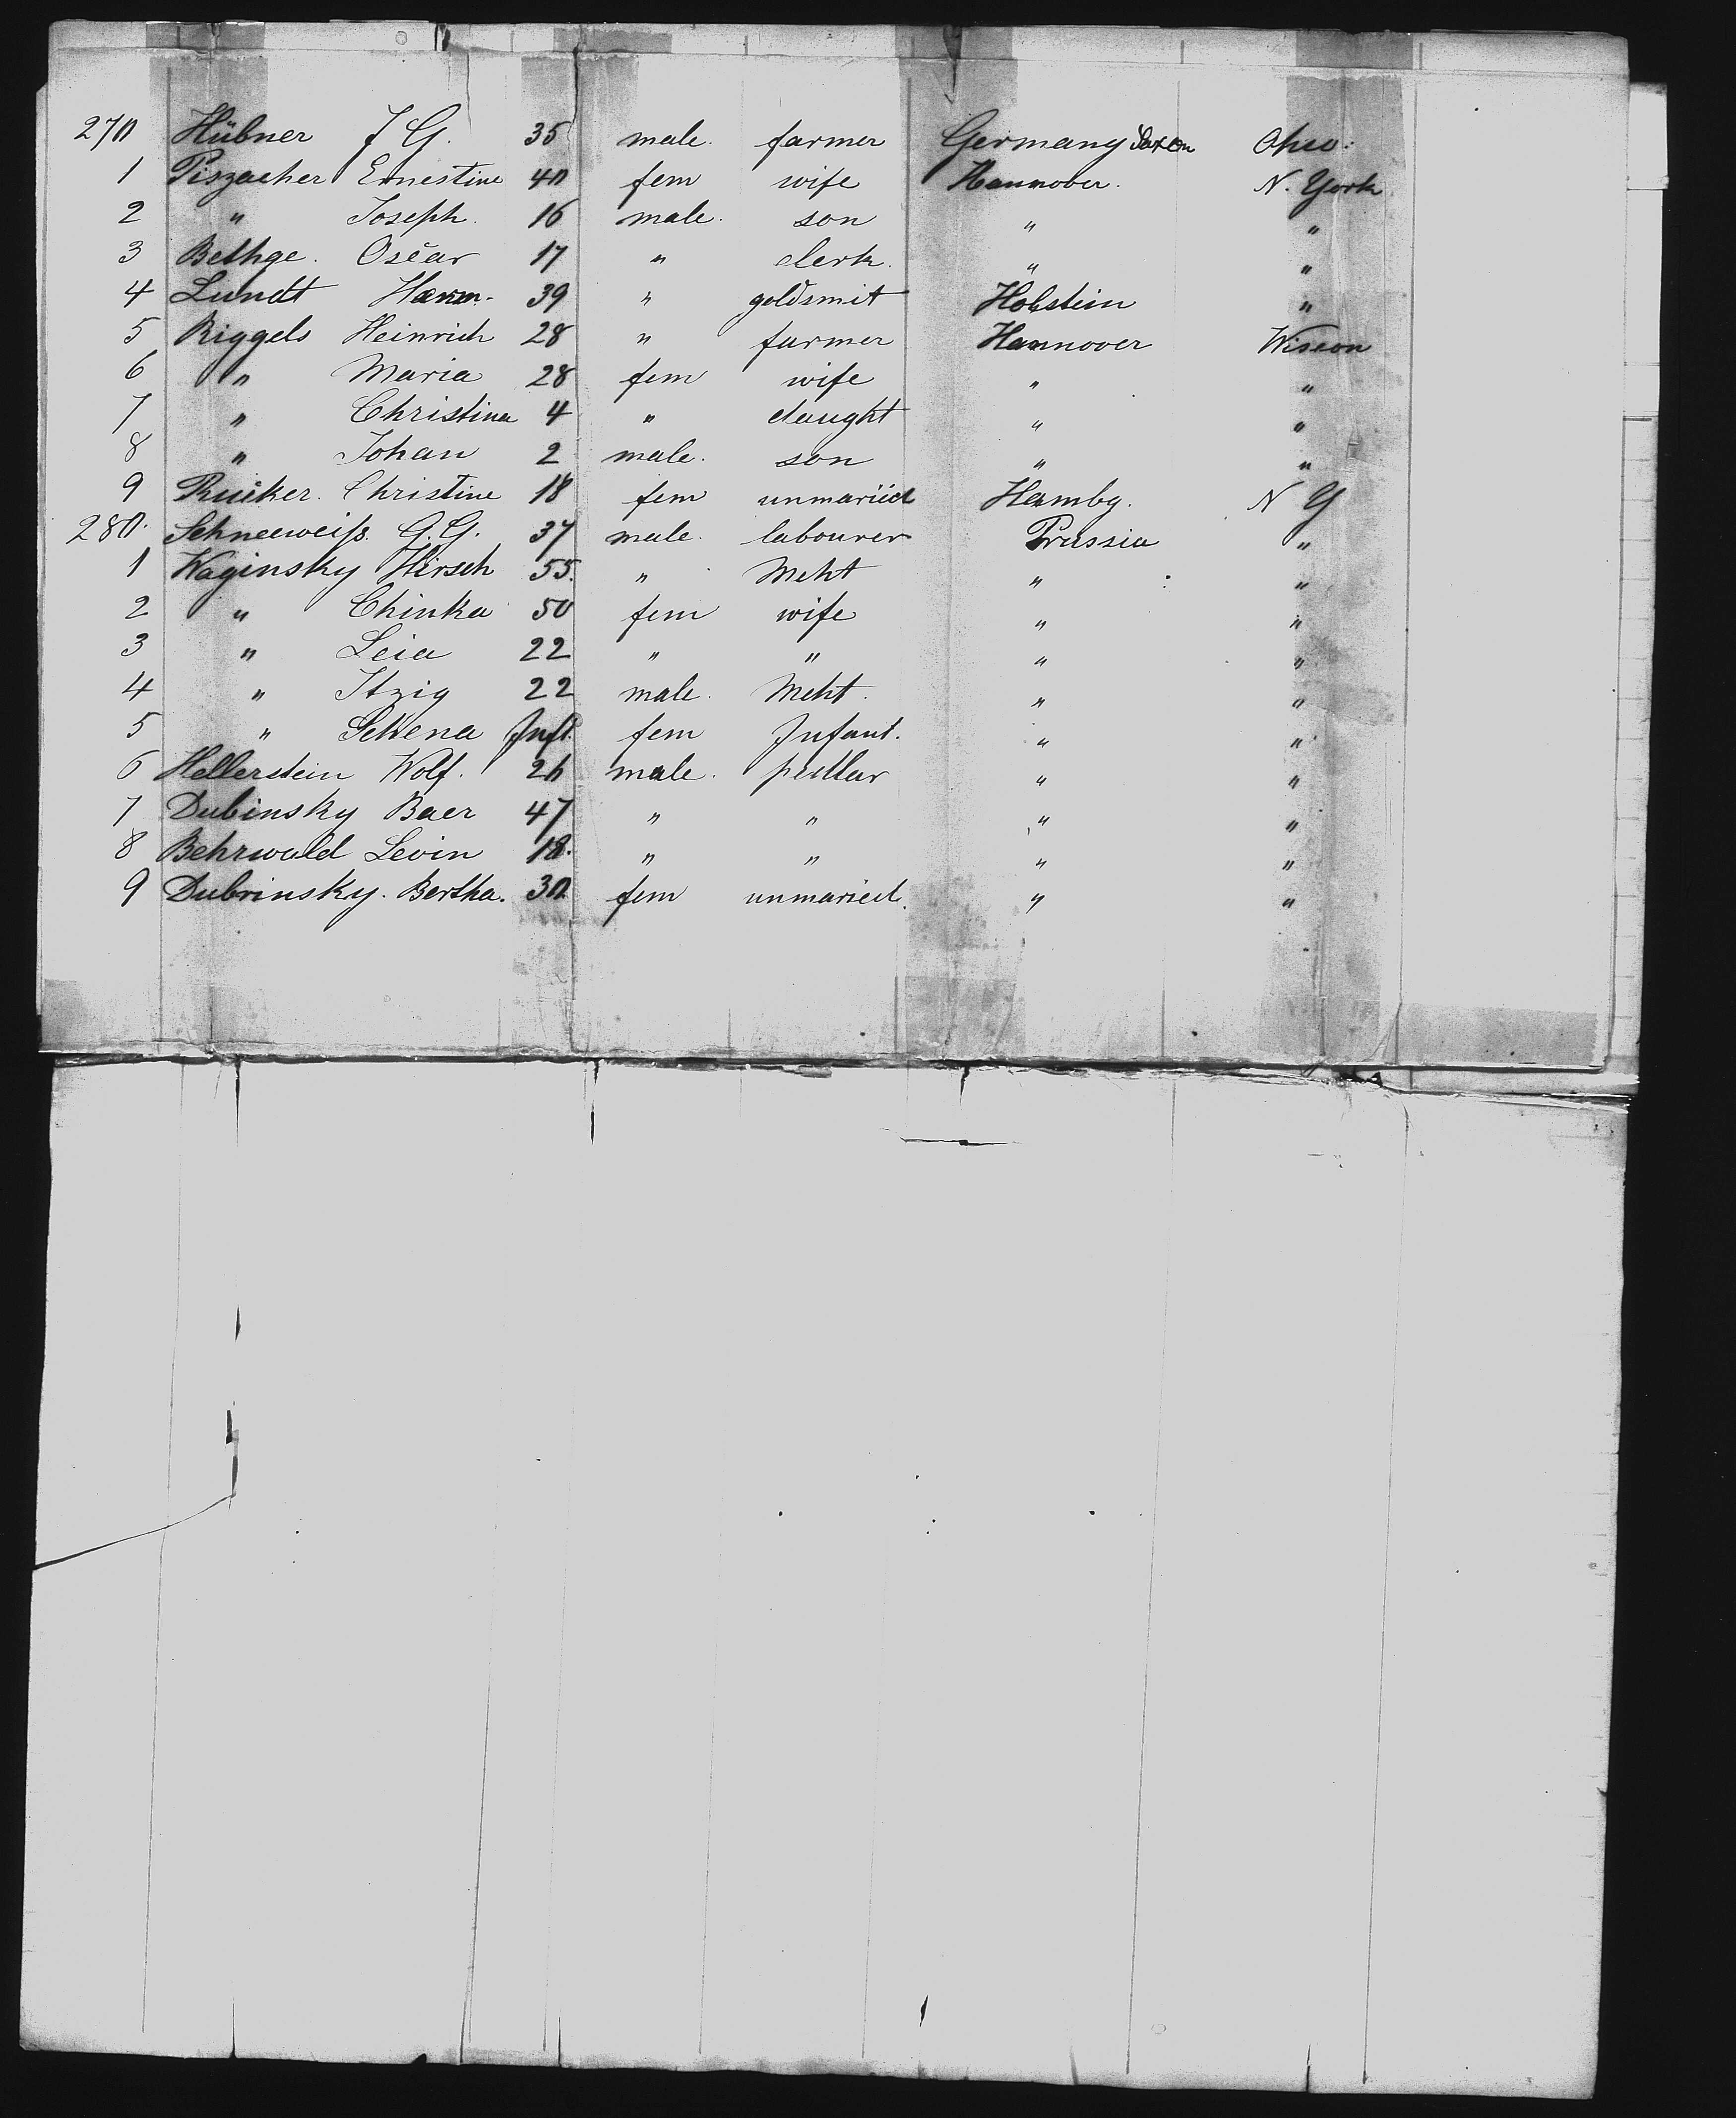 270 Hübner J G. 35 male. farmer Germany Saxon Ohio.
1 Piszacher Ernestine 40 fem wife Hannover. N. York
2 " Joseph. 16 male. son " "
3 Bethge. Oscar 17 " clerk. " "
4 Lundt Herm. 39 " goldsmit Holstein "
5 Riggels Heinrich 28 " farmer Hannover Wiscon
6 " Maria 28 fem wife " "
7 " Christina 4 " daught " "
8 " Johan 2 male. son " "
9 Rucker. Christine 18 fem unmaried Hambg. N Y
280. Schneeweiß. G. G. 37 male. labourer Prussia "
1 Waginsky Hirsch 55. " Mcht " "
2 " Chinka 50 fem wife " "
3 " Leia 22 " " " "
4 " Itzig 22 male. Mcht. " "
5 " Inft. fem Infant. " "
6 Hellerstein Wolf. 26 male. pedlar " "
7 Dubinsky Baer 47 " " " "
8 Behrwald Levin 18. " " " "
9 Dubrinsky. Bertha. 30 fem unmaried. " "